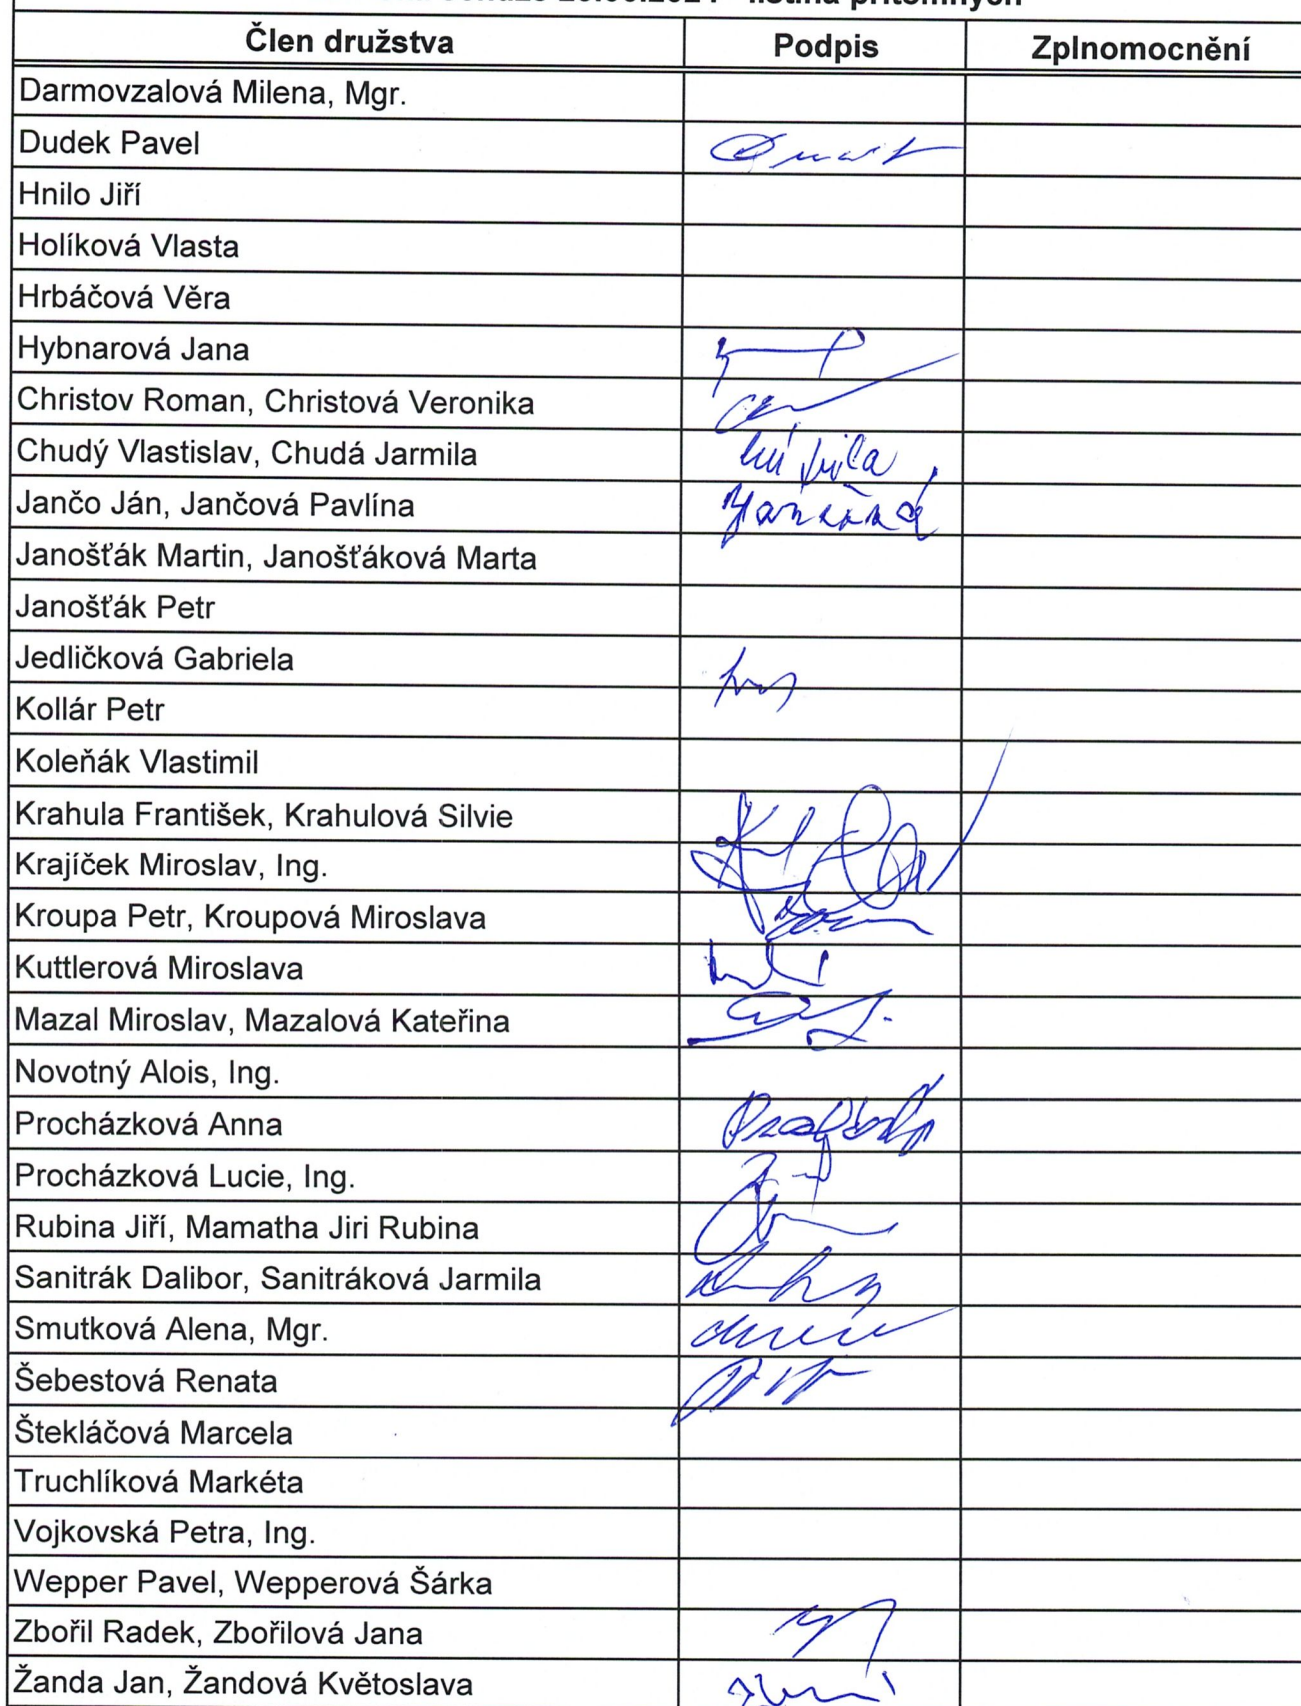 listina přítomných
Člen družstva Podpis Zplnomocnění
Darmovzalová Milena, Mgr.
Dudek Pavel
Hnilo Jiří
Holíková Vlasta
Hrbáčová Věra
Hybnarová Jana
Christov Roman, Christová Veronika
Chudý Vlastislav, Chudá Jarmila
Jančo Ján, Jančová Pavlína
Janošťák Martin, Janošťáková Marta
Janošťák Petr
Jedličková Gabriela
Kollár Petr
Koleňák Vlastimil
Krahula František, Krahulová Silvie
Krajíček Miroslav, Ing.
Kroupa Petr, Kroupová Miroslava
Kuttlerová Miroslava
Mazal Miroslav, Mazalová Kateřina
Novotný Alois, Ing.
Procházková Anna
Procházková Lucie, Ing.
Rubina Jiří, Mamatha Jiri Rubina
Sanitrák Dalibor, Sanitráková Jarmila
Smutková Alena, Mgr.
Šebestová Renata
Štekláčová Marcela
Truchlíková Markéta
Vojkovská Petra, Ing.
Wepper Pavel, Wepperová Šárka
Zbořil Radek, Zbořilová Jana
Žanda Jan, Žandová Květoslava